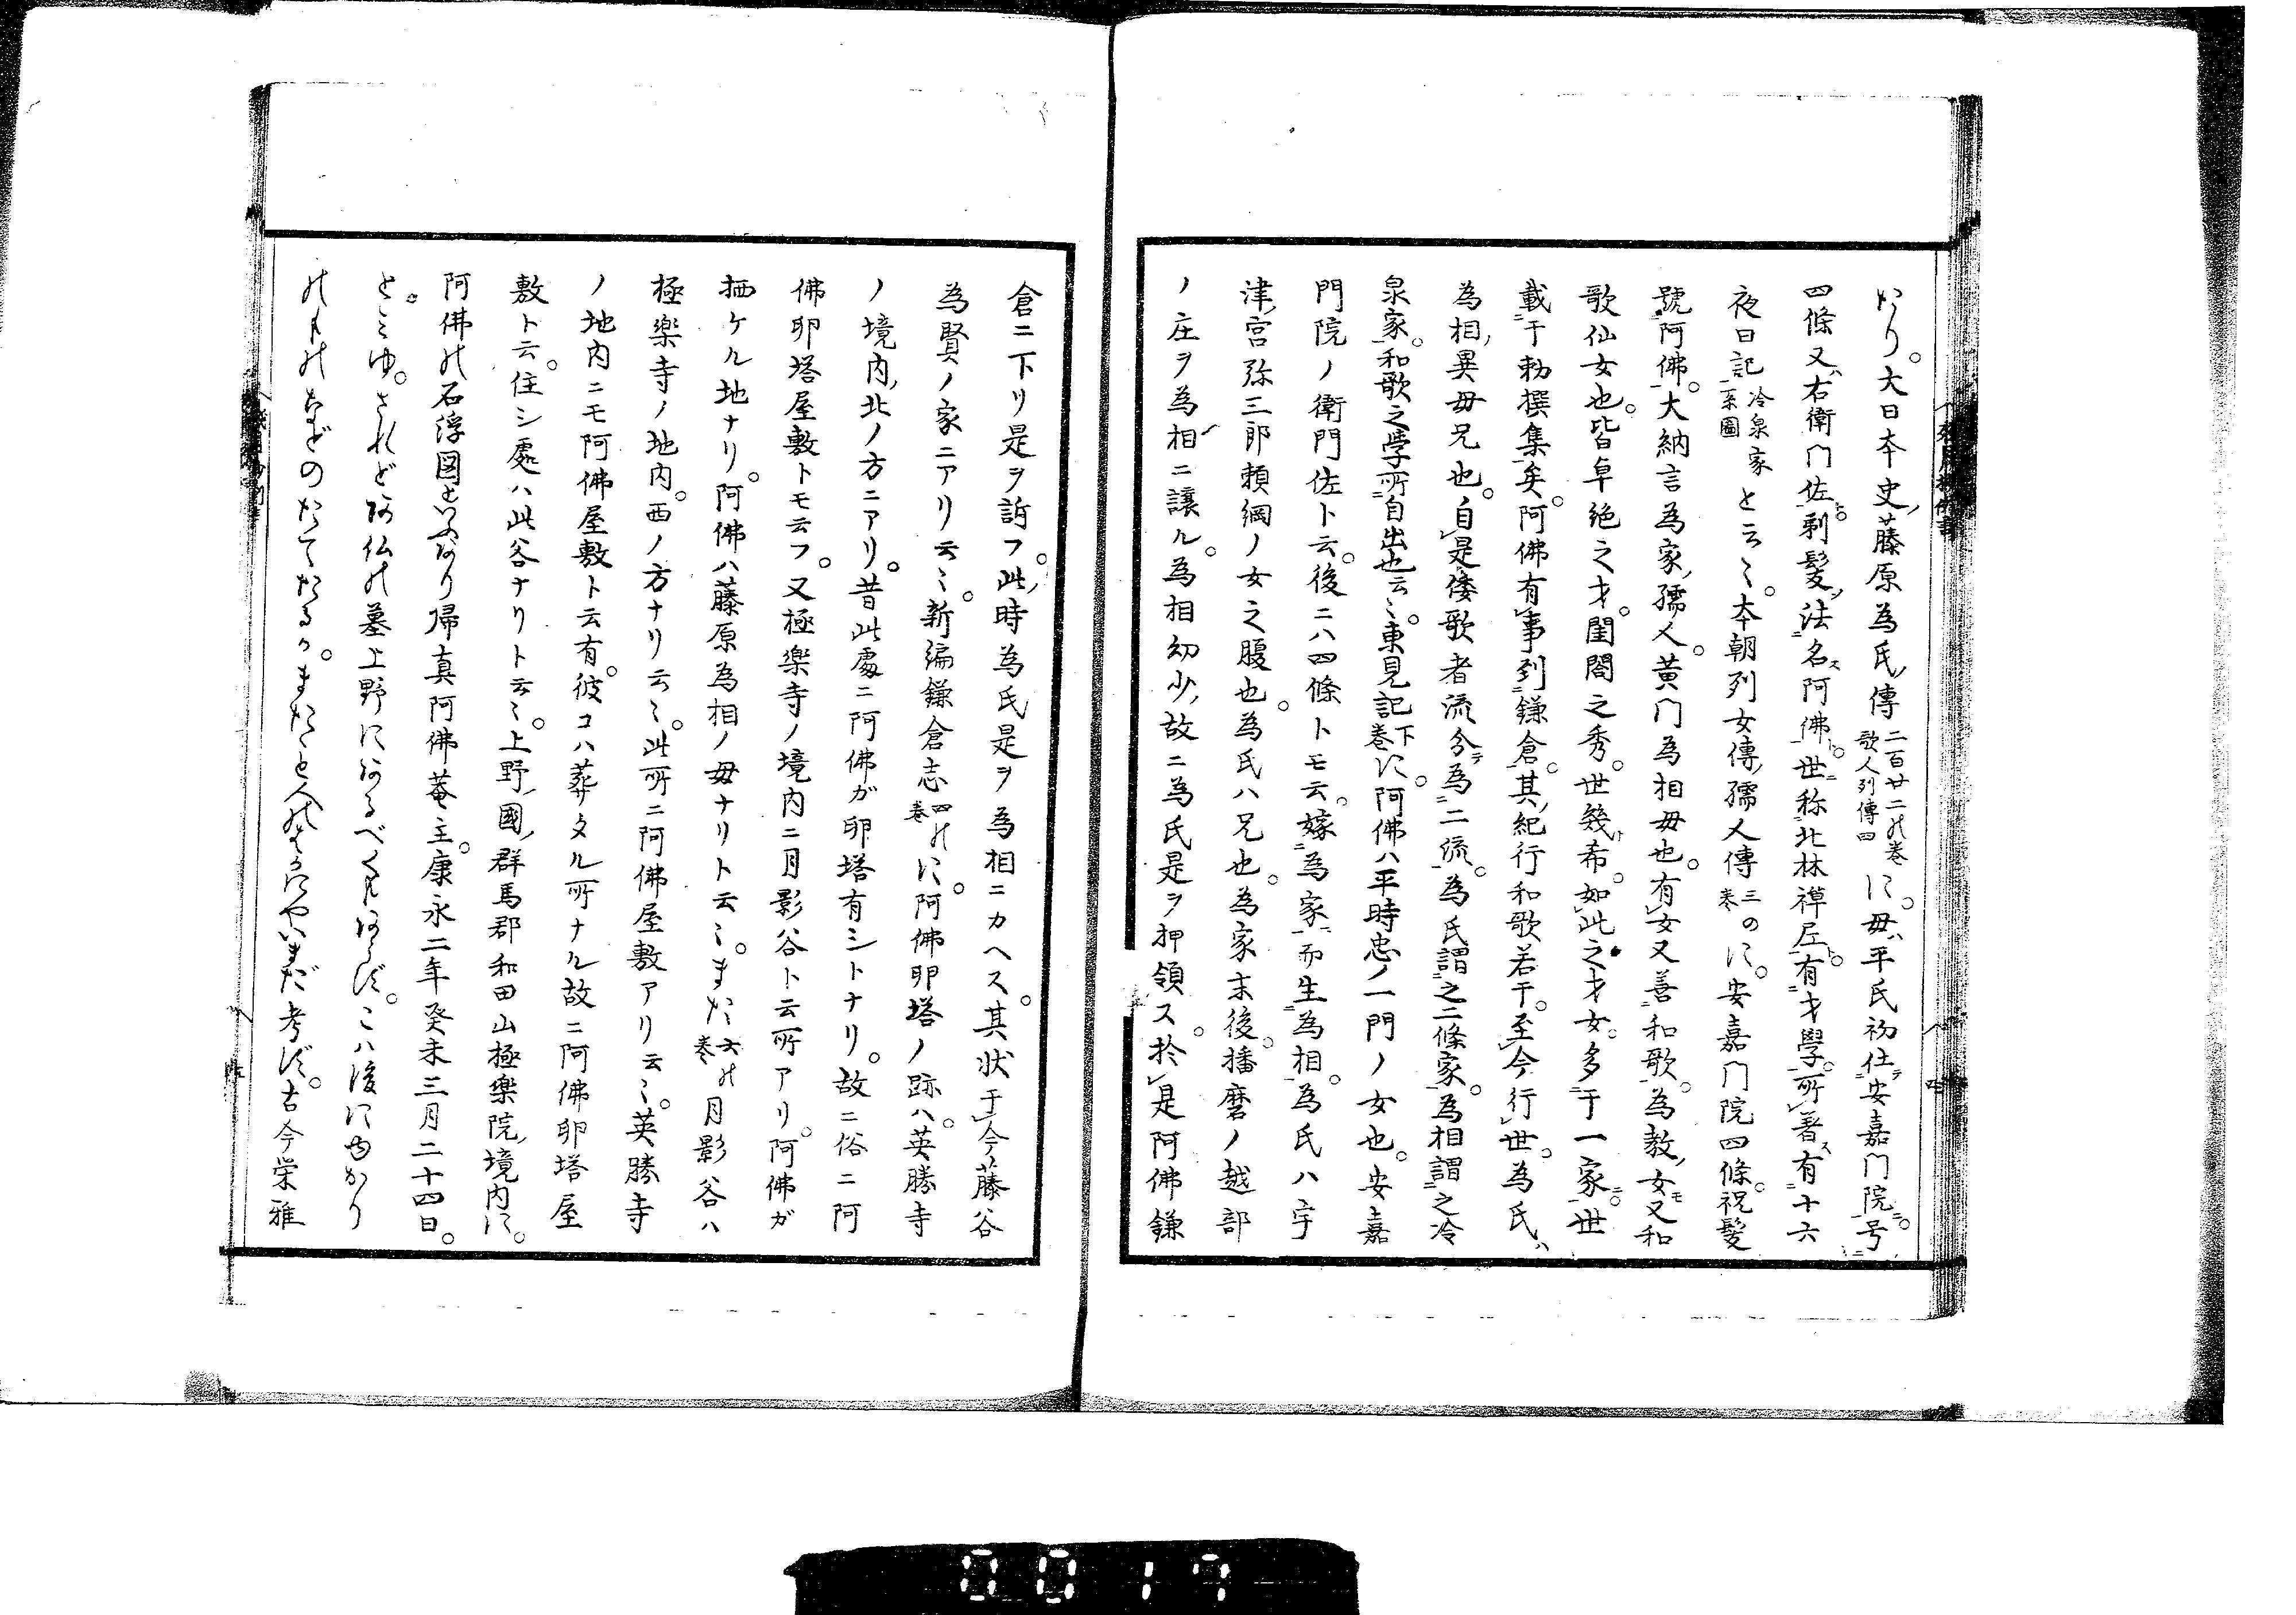 かり。大日本史、藤原為氏、傳二百廿二の巻歌人列傳四に。母ハ平氏初仕テ安嘉門院ニ。号
四條又ハ右衛門佐ト。剃髮、法名ス阿佛ト。世ニ称北林禅尼ト。有才學。所著ス有十六
夜日記冷泉家系圖と云々。本朝列女傳、孺人傳三巻のに。安嘉門院四條。祝髮
號阿佛。大納言為家、孺人。黄门為相母也。有女又善和歌。為教、女モ又和
歌仙女也。皆卓絶之才。閨閤之秀。世幾希。如此之才女。多于一家。世
載于勅撰集矣。阿佛有事到鎌倉。其、紀行和歌若干。至今行世。為氏ハ
為相、異母兄也。自是倭歌者流分テ為二流。為氏謂之二條家。為相謂之冷
泉家。和歌之學所自出也云々。東見記下巻に。阿佛ハ平時忠ノ一門ノ女也。安嘉
門院ノ衛門佐ト云。後ニハ四條トモ云。嫁為家而生為相。為氏ハ宇
津宮弥三郎頼綱ノ女之腹也。為氏ハ兄也。為家末後。播磨ノ越部
ノ庄ヲ為相ニ譲ル。為相幼少、故ニ為氏是ヲ押領ス。於是阿佛鎌
倉ニ下リ是ヲ訴フ。此時為氏是ヲ為相ニカヘス。其状于今藤谷
為賢ノ家ニアリ云々。新編鎌倉志四巻のに。阿佛卵塔ノ跡ハ。英勝寺
ノ境内、北ノ方ニアリ。昔此處ニ阿佛ガ卵塔有シトナリ。故ニ俗ニ阿
佛卵塔屋敷トモ云フ。又極楽寺ノ境内ニ月影谷ト云所アリ。阿佛ガ
栖ケル地ナリ。阿佛ハ藤原為相ノ母ナリト云々。また六巻の月影谷ハ
極楽寺ノ地内。西ノ方ナリ云々。此所ニ阿佛屋敷アリ云々。英勝寺
ノ地内ニモ阿佛屋敷ト云有。彼コハ葬タル所ナル故ニ阿佛卵塔屋
敷ト云。住シ處ハ此谷ナリト云々。上野、國、群馬郡和田山極楽院、境内に。
阿佛の石浮図といふあり帰真阿佛菴主。康永二年癸未三月二十四日。
とみゆ。されど阿仏の墓上野にあるべくもあらず。こハ後にゆかり
のものなどのたてたるか。また人のにやいまだ考ず。古今栄雅